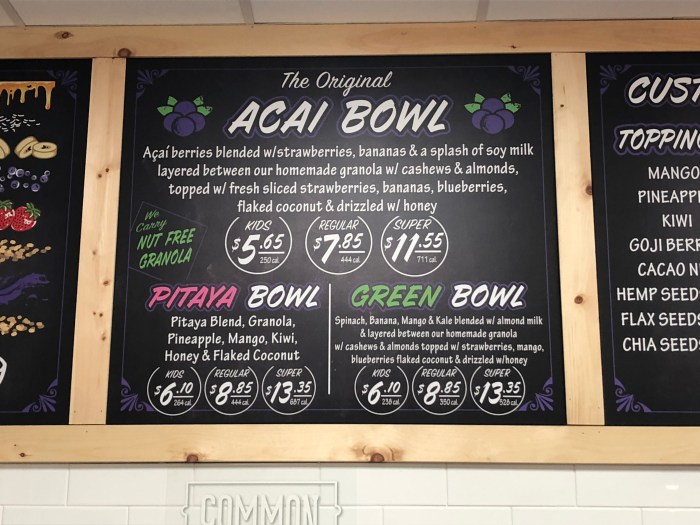 The Original
ACAI BOWL
Açaí berries blended w/strawberries, bananas & a splash of soy milk
layered between our homemade granola w/ cashews & almonds,
topped w/ fresh sliced strawberries, bananas, blueberries,
flaked coconut & drizzled w/ honey
We
Carry
NUT FREE
GRANOLA
KIDS
$5.65
250 cal
REGULAR
$7.85
444 cal
SUPER
$11.55
711 cal
PITAYA BOWL
Pitaya Blend, Granola,
Pineapple, Mango, Kiwi,
Honey & Flaked Coconut
KIDS
$6.10
264 cal
REGULAR
$8.85
444 cal
SUPER
$13.35
687 cal
GREEN BOWL
Spinach, Banana, Mango & Kale blended w/ almond milk
& layered between our homemade granola
w/ cashews & almonds topped w/ strawberries, mango,
blueberries flaked coconut & drizzled w/honey
KIDS
$6.10
238 cal
REGULAR
$8.85
350 cal
SUPER
$13.35
528 cal
CUST
TOPPING
MANGO
PINEAPPL
KIWI
GOJI BERR
CACAO N
HEMP SEED
FLAX SEEDS
CHIA SEEDS
COMMON